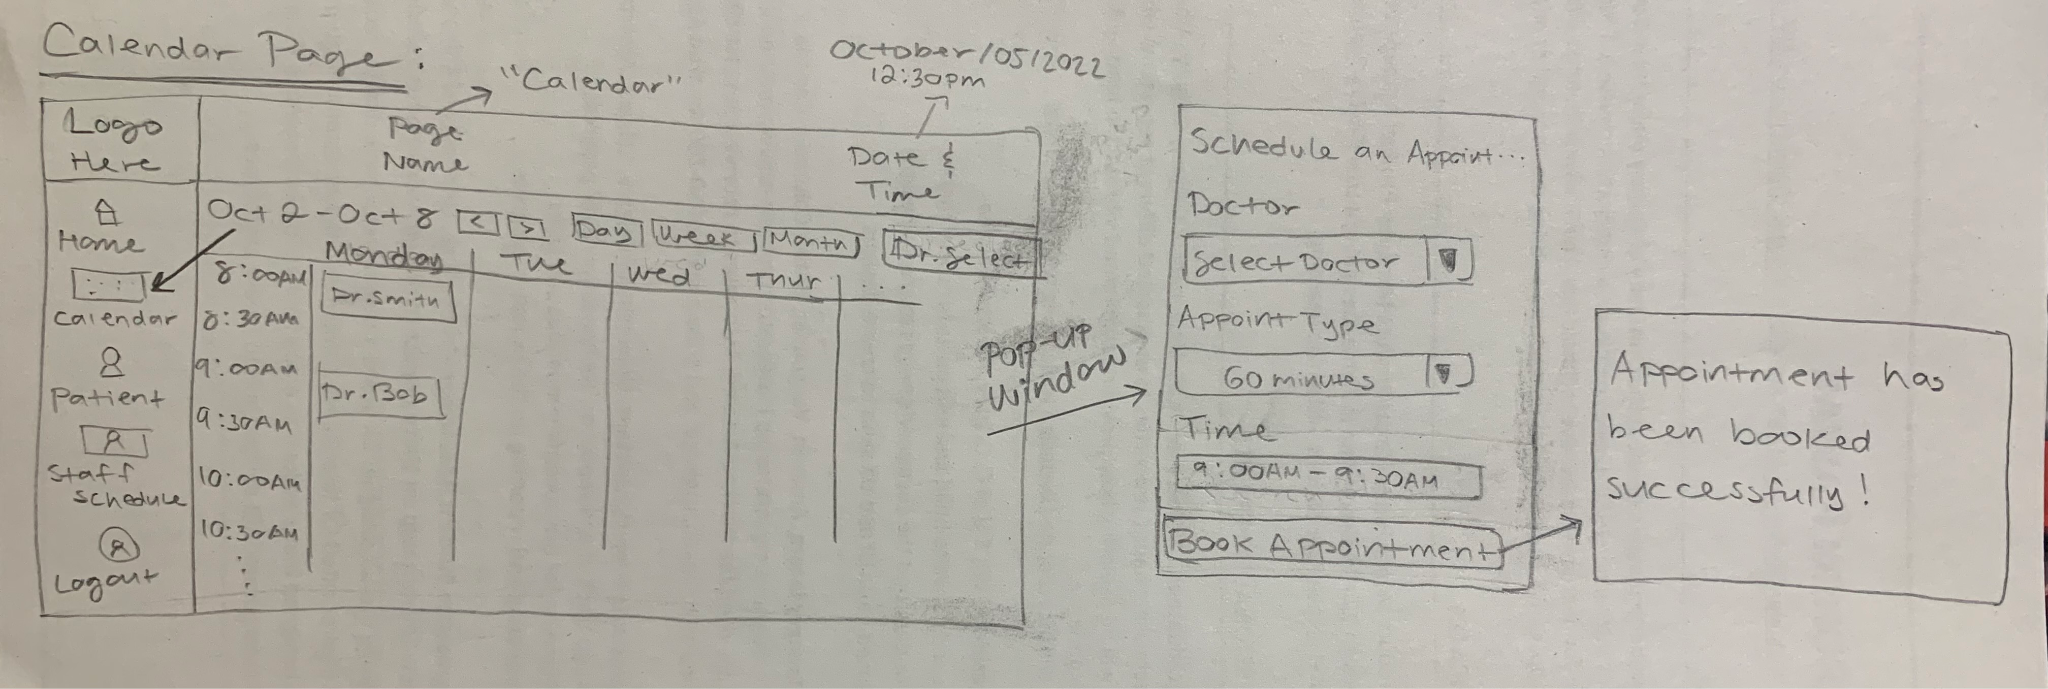 Calendar Page:
"Calendar"
October/05/2022
12:30pm
Logo
Here
Page
Name
Date &
Time
Home
Calendar
Patient
Staff
Schedule
Logout
Oct 2 - Oct 8 < > Day Week Month Dr. Select
Monday Tue Wed Thur ...
8:00AM Dr. Smith
8:30AM
9:00AM Dr. Bob
9:30AM
10:00AM
10:30AM
POP-UP
WINDOW
Schedule an Appoint...
Doctor
Select Doctor
Appoint Type
60 minutes
Time
9:00AM - 9:30AM
Book Appointment
Appointment has
been booked
successfully!